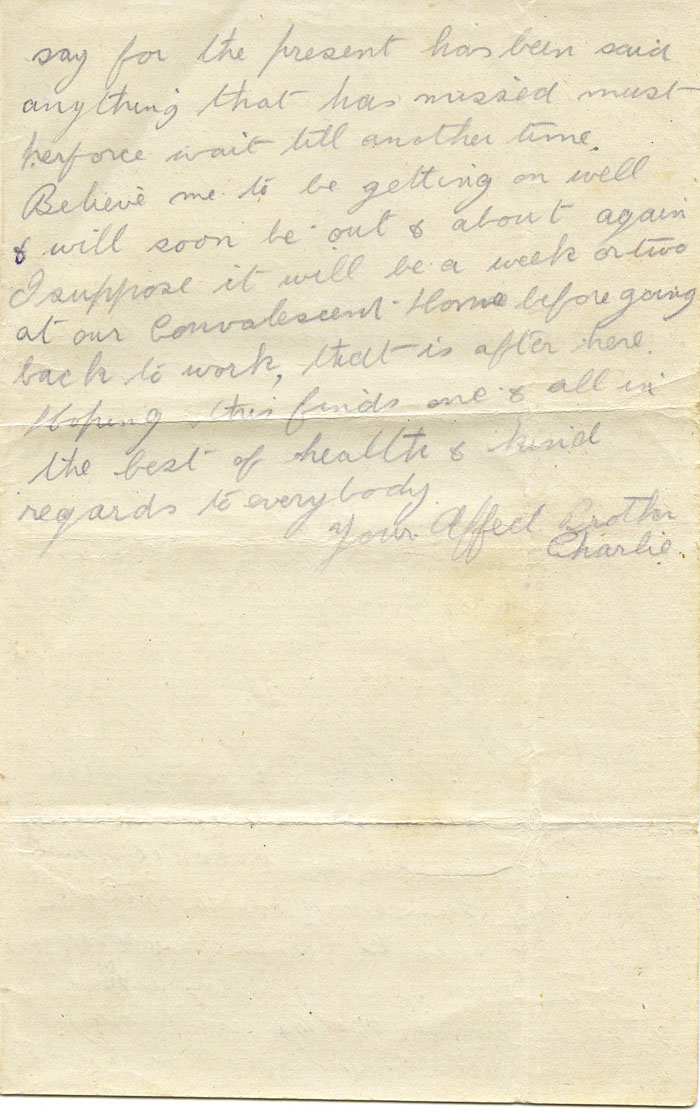 say for the present has been said
anything that has missed must
perforce wait till another time.
Believe me to be getting on well
& will soon be out & about again
I suppose it will be a week or two
at our Convalescent Home before going
back to work, that is after here.
Hoping this finds one & all in
the best of health & kind
regards to everybody.
Your Affect Brother
Charlie.